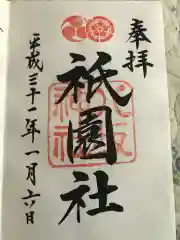 奉拝
祇園社
平成三十一年一月六日